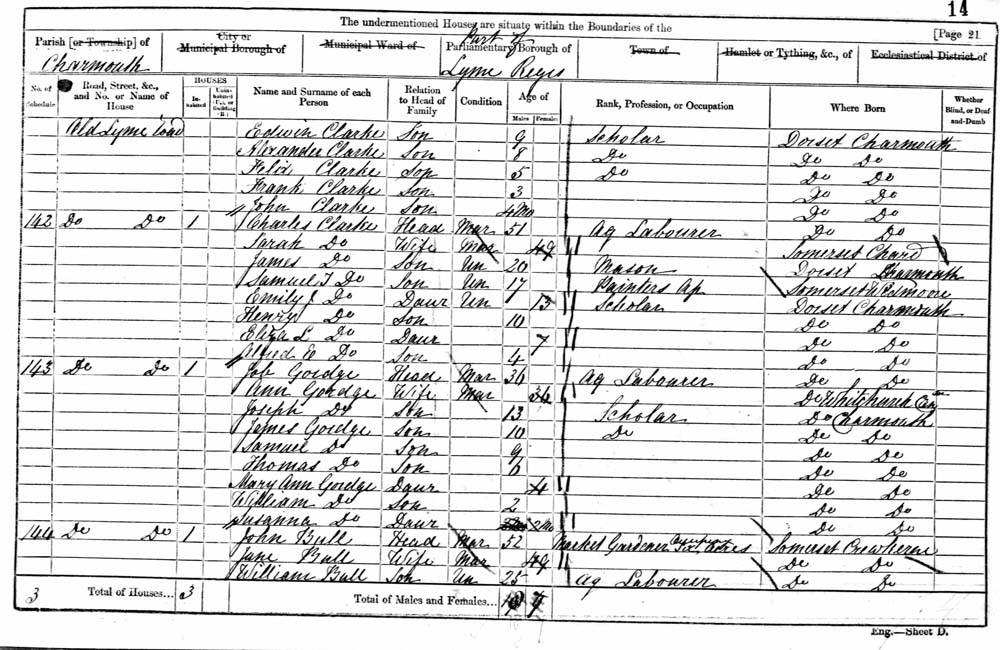 14
The undermentioned Houses are situate within the Boundaries of the
[Page 21
Parish [or Township] of
Charmouth
City or Municipal Borough of
Municipal Ward of
Part of
Parliamentary Borough of
Lyme Regis
Town of
Hamlet or Tything, &c., of
Ecclesiastical District of
No. of Schedule
Road, Street, &c., and No. or Name of House
HOUSES
Inhabited
Uninhabited (U.), or Building (B.)
Name and Surname of each Person
Relation to Head of Family
Condition
Age of
Males
Females
Rank, Profession, or Occupation
Where Born
Whether Blind, or Deaf-and-Dumb
Old Lyme Road Edwin Clarke Son 9 Scholar Dorset Charmouth
Alexander Clarke Son 8 Do Do Do
Felix Clarke Son 5 Do Do Do
Frank Clarke Son 3 Do Do
John Clarke Son 4 Mo Do Do
142 Do Do 1 Charles Clarke Head Mar 51 Ag Labourer Do Do
Sarah Do Wife Mar 49 Somerset Chard
James Do Son Un 20 Mason Dorset Charmouth
Samuel T Do Son Un 17 Painters Ap Somerset
Emily J Do Daur Un 13 Scholar Dorset Charmouth
Henry Do Son 10 Do Do
Eliza L Do Daur 7 Do Do
Alfred E Do Son 4 Do Do
143 Do Do 1 Job Gordge Head Mar 36 Ag Labourer Do Do
Ann Gordge Wife Mar 34 Do Whitchurch Can
Joseph Do Son 13 Scholar Do Charmouth
James Gordge Son 10 Do Do Do
Samuel Do Son 9 Do Do
Thomas Do Son 6 Do Do
Mary Ann Gordge Daur 4 Do Do
William Do Son 2 Do Do
Susanna Do Daur 8 Mo Do Do
144 Do Do 1 John Bull Head Mar 52 Market Gardener Six Acres Somerset Crewkerne
Jane Bull Wife Mar 49 Do Do
William Bull Son Un 25 Ag Labourer Do Do
3 Total of Houses... 3
Total of Males and Females... 7
Eng.—Sheet D.